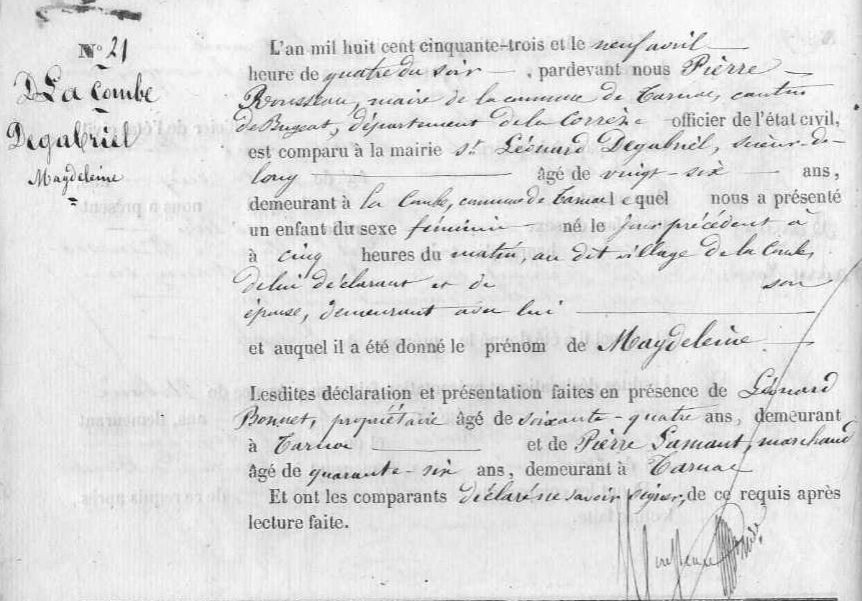 N° 21
La Combe
Degabriel
Magdeleine
L'an mil huit cent cinquante-trois et le neuf avril
heure de quatre du soir, pardevant nous Pierre
Rousseau, maire de la commune de Tarnac, canton
de Bugeat, département de la Corrèze officier de l'état civil,
est comparu à la mairie st Léonard Degabriel, scieur-de-
long âgé de vingt-six ans,
demeurant à la Combe, commune de Tarnac lequel nous a présenté
un enfant du sexe féminin né le jour précédent à
à cinq heures du matin, au dit village de la Combe,
de lui déclarant et de son
épouse, demeurant avec lui
et auquel il a été donné le prénom de Magdeleine.
Lesdites déclaration et présentation faites en présence de Léonard
Bonnet, propriétaire âgé de soixante-quatre ans, demeurant
à Tarnac et de Pierre Samaut, marchand
âgé de quarante-six ans, demeurant à Tarnac
Et ont les comparants déclaré ne savoir signer, de ce requis après
lecture faite.